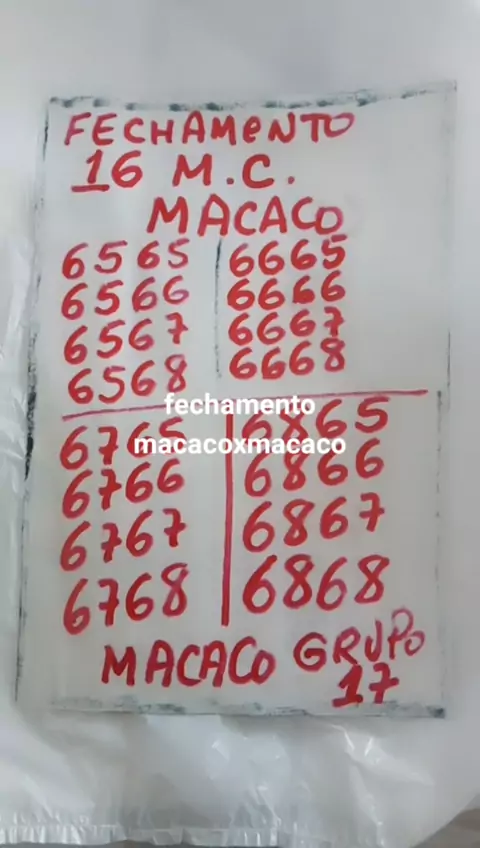 FECHAMENTO
16 M.C.
MACACO
6565 6665
6566 6666
6567 6667
6568 6668
fechamento
macacoxmacaco
6765 6865
6766 6866
6767 6867
6768 6868
MACACO GRUPO
17